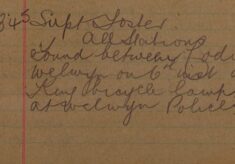 345 Supt Foster
All Stations
found between Codi
Welwyn on 6th inst a
King bicycle lamp
at Welwyn Police